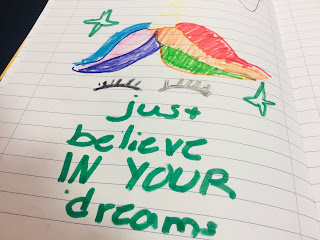 just
believe
IN YOUR
dreams